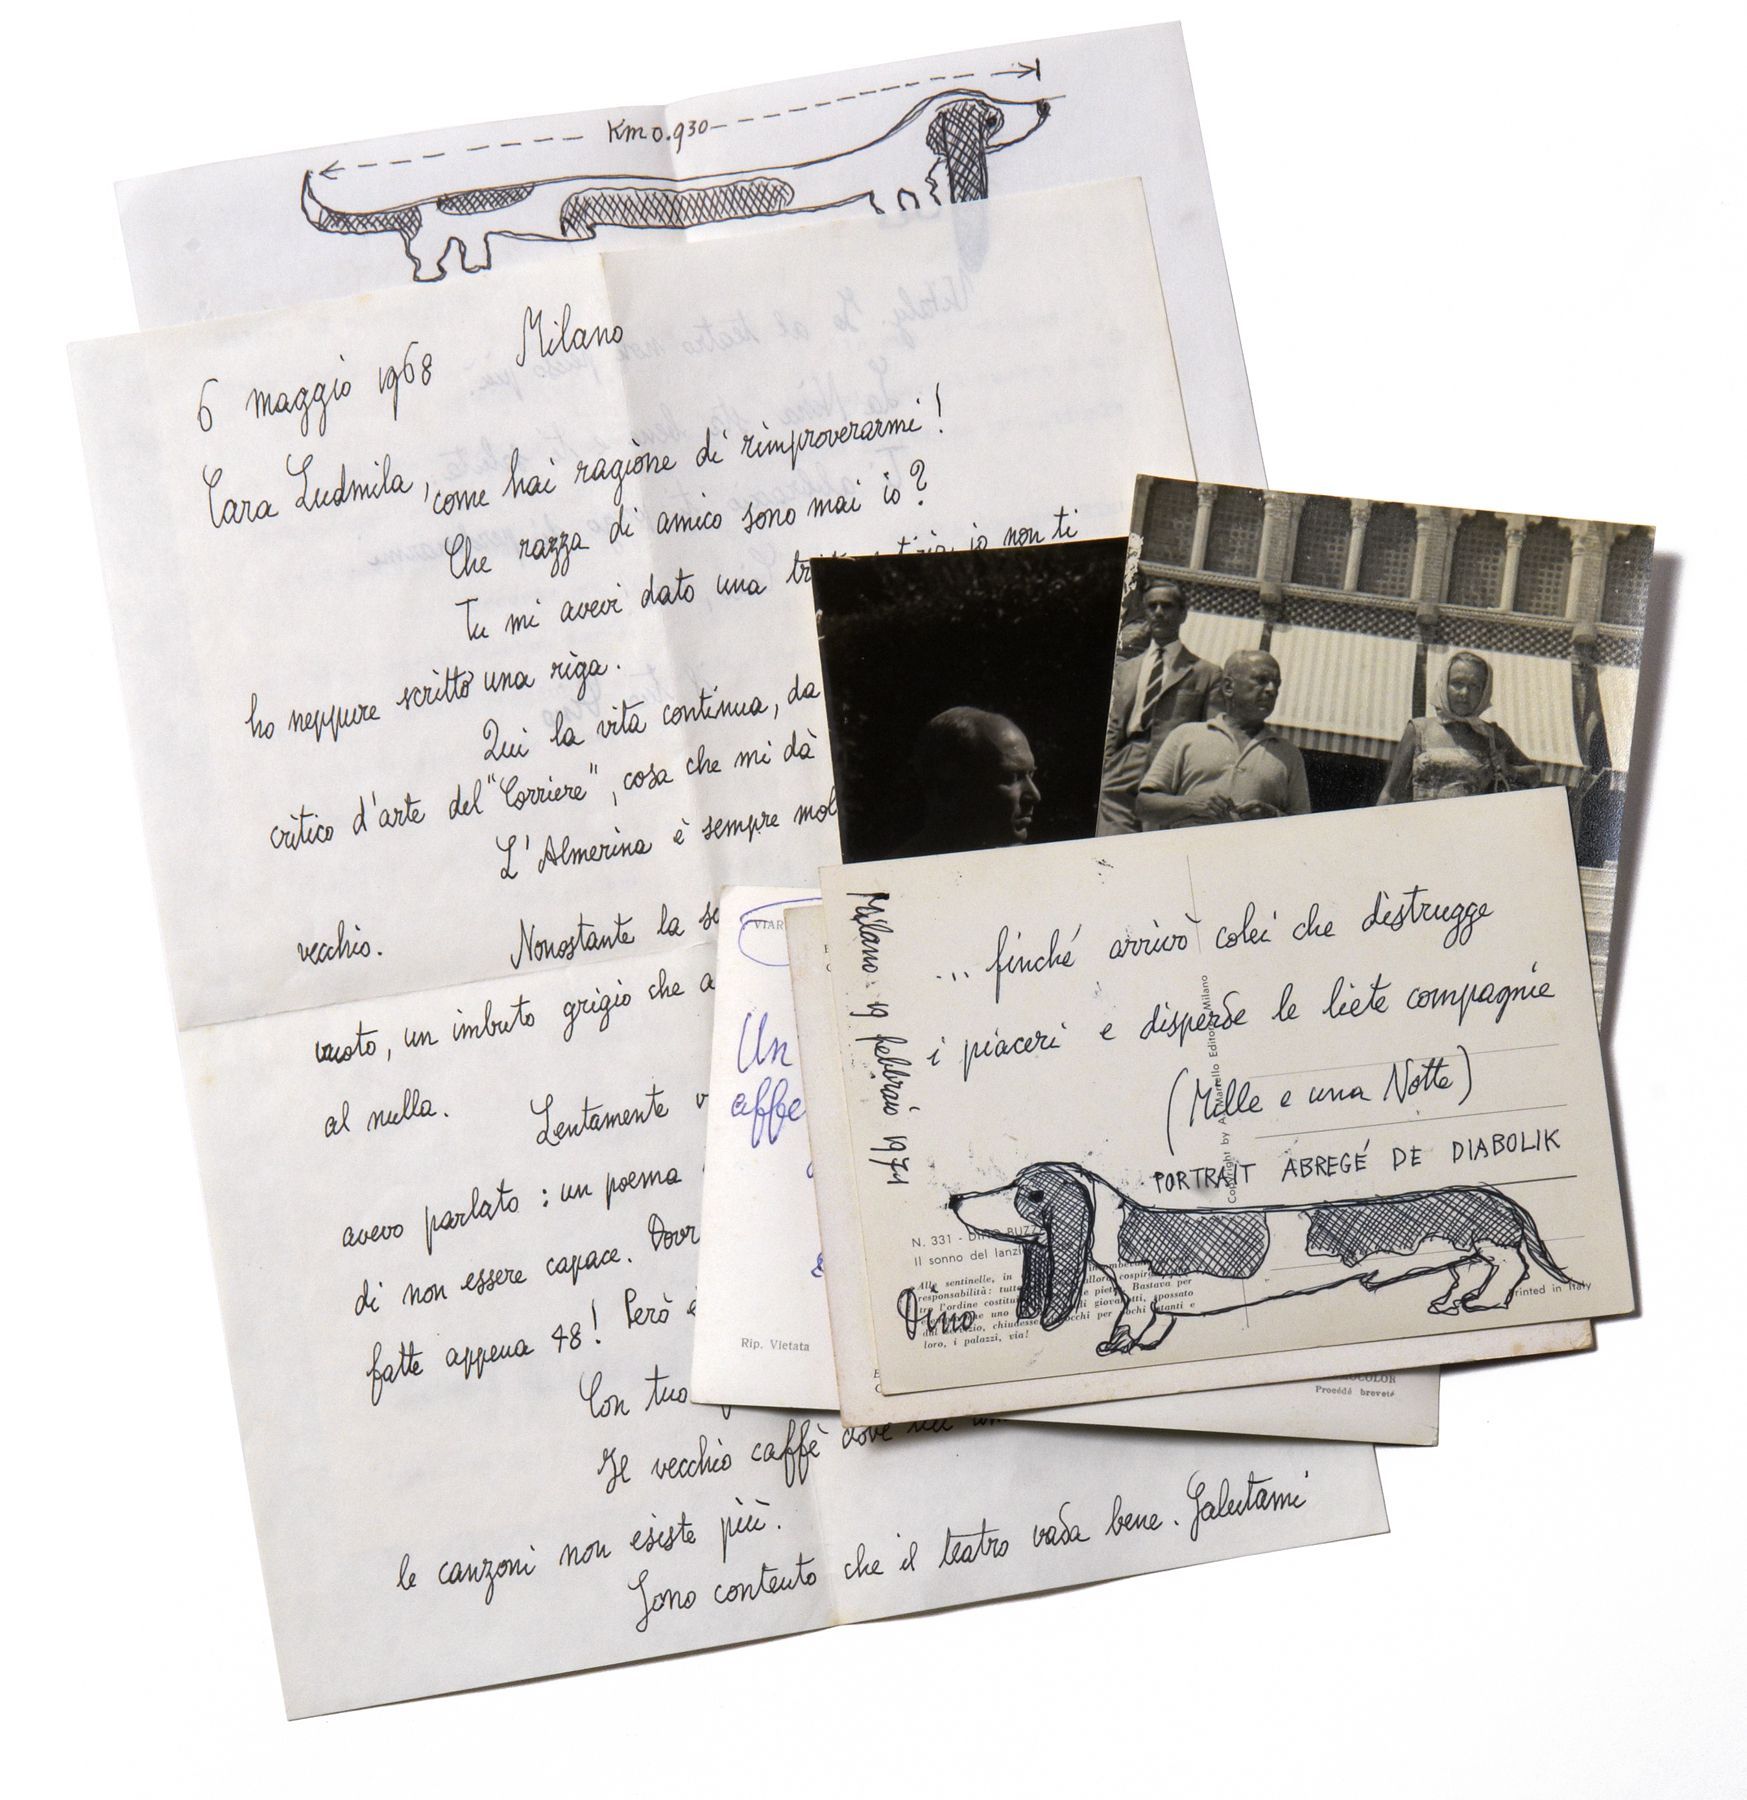 Km 0.930
6 maggio 1968 Milano
Cara Ludmila,
come hai ragione di rimproverarmi!
Che razza di amico sono mai io?
Tu mi avevi dato una io non ti
ho neppure scritto una riga.
Qui la vita continua, da
critico d'arte del "Corriere", cosa che mi dà
L'Almerina è sempre
vecchio. Nonostante la
vuoto, un imbuto grigio che
al nulla. Lentamente
avevo parlato: un poema
di non essere capace.
fatte appena 48! Però
Con tuo
Il vecchio caffè dove
le canzoni non esiste più.
Sono contento che il teatro vada bene. Salutami
VIAR
Un
affe
Rip. Vietata
Milano 19 febbraio 1971
... finché arrivò colei che distrugge
i piaceri e disperde le liete compagnie
(Mille e una Notte)
PORTRAIT ABREGÉ DE DIABOLIK
Copyright by A. Martello Editore Milano
N. 331 - DINO BUZZ
Il sonno del lanzi
Alle sentinelle, in
responsabilità: Bastava per
l'ordine spossato
uno
chiudesse occhi per istanti e
loro, i palazzi, via!
Printed in Italy
Dino
OCOLOR
Procédé breveté